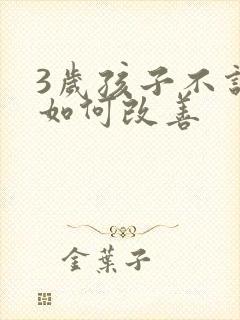 3歲孩子不
如何改善
金葉子